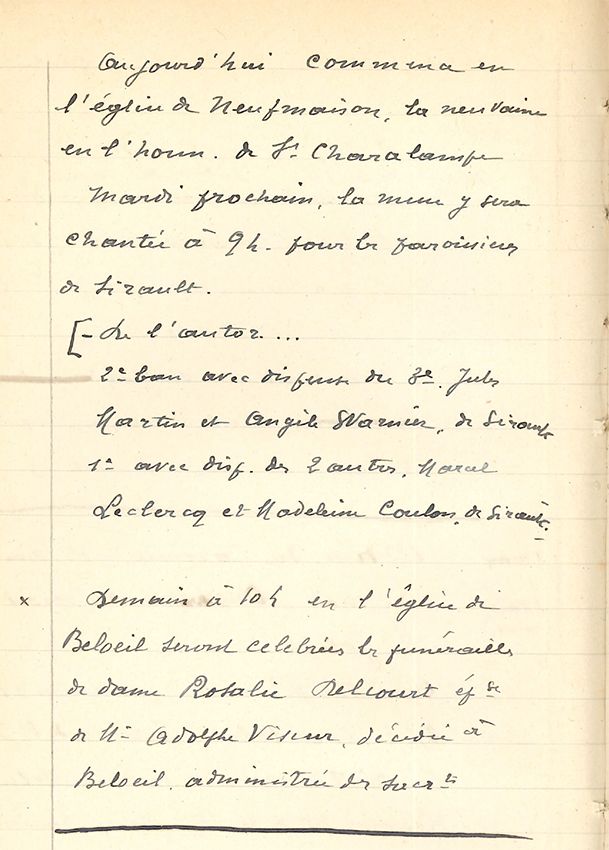 Aujourd'hui commence en
l'église de Neufmaison, la neuvaine
en l'honn. de St Charalampe
Mardi prochain, la messe y sera
chantée à 9h. pour les paroissiens
de Sirault.
[- De l'autor...
2e ban avec dispense du 3e. Jules
Martin et Angèle Warnier, de Sirault
1er avec disp. des 2 autres, Marcel
Leclercq et Madeleine Coulon, de Sirault.
x Demain à 10h en l'église de
Beloeil seront celebrées les funérailles
de dame Rosalie Delcourt épse
de Mr Adolphe Viseur, décédée à
Beloeil. administrée des sacrts